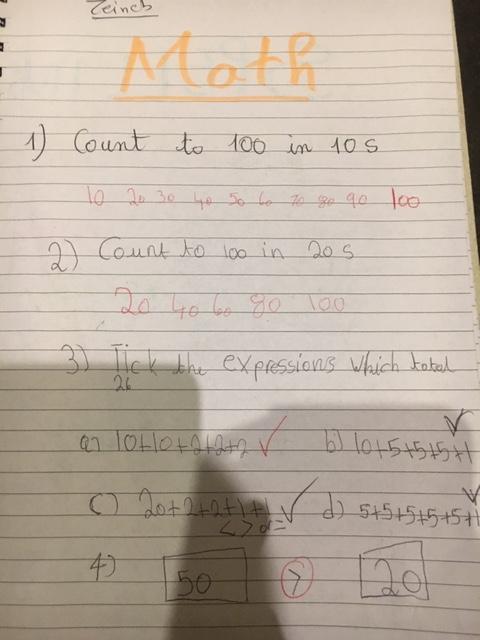 Zeineb
Math
1) Count to 100 in 10s
10 20 30 40 50 60 70 80 90 100
2) Count to 100 in 20s
20 40 60 80 100
3) Tick the expressions which total
26
a) 10+10+2+2+2 ✓ b) 10+5+5+5+1 ✓
c) 20+2+2+1+1 ✓ d) 5+5+5+5+5+1 ✓
< > or =
4) 50 > 20